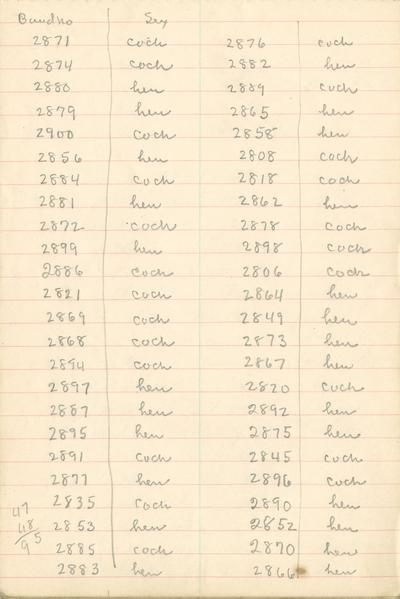 Band no Sex
2871 cock 2876 cock
2874 cock 2882 hen
2880 hen 2889 cock
2879 hen 2865 hen
2900 cock 2858 hen
2856 hen 2808 cock
2884 cock 2818 cock
2881 hen 2862 hen
2872 cock 2878 cock
2899 hen 2898 cock
2886 cock 2806 cock
2821 cock 2864 hen
2869 cock 2849 hen
2868 cock 2873 hen
2894 cock 2867 hen
2897 hen 2820 cock
2887 hen 2892 hen
2895 hen 2875 hen
2891 cock 2845 cock
2877 hen 2896 cock
2835 cock 2890 hen
47
48 2853 hen 2852 hen
95 2885 cock 2870 hen
2883 hen 2866 hen